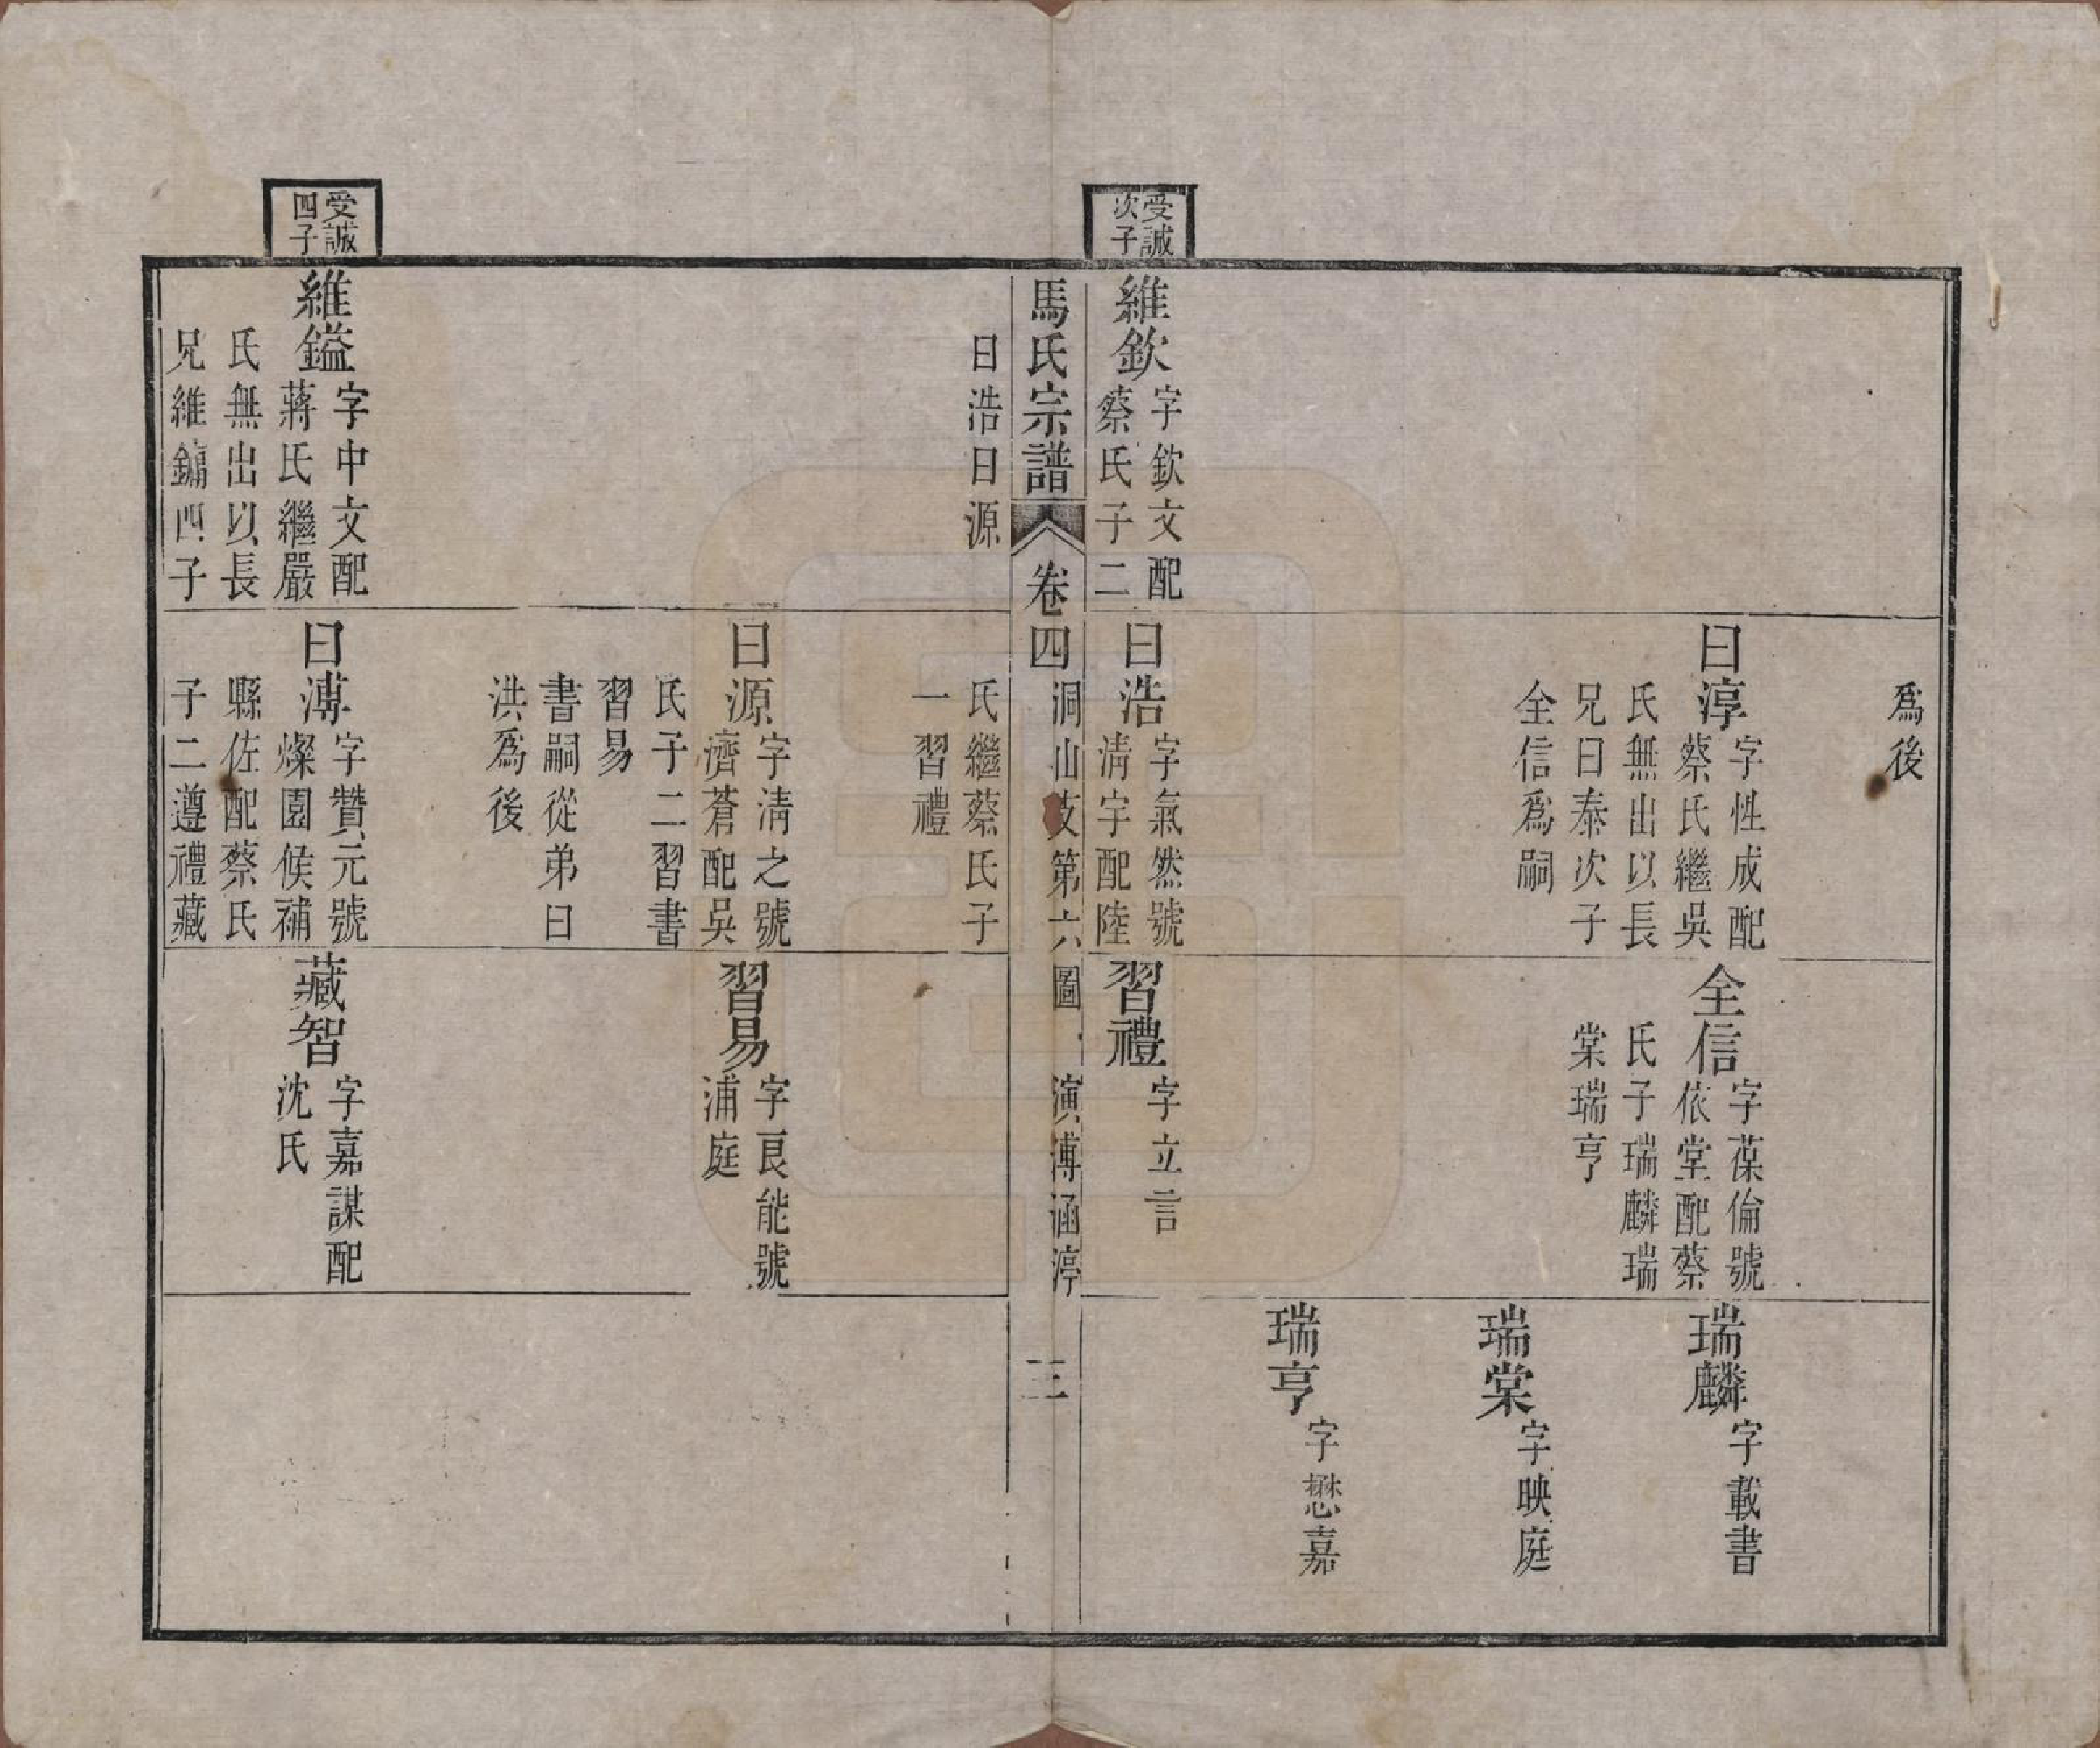 爲後
曰淳
字性成配
蔡氏繼吳
氏無出以長
兄曰泰次子
全信爲嗣
全信
字葆倫號
依堂配蔡
氏子瑞麟瑞
棠瑞亨
瑞麟
字載書
瑞棠
字映庭
瑞亨
字懋嘉
受誠
次子
維欽
字欽文配
蔡氏子二
曰浩
字氣然號
淸宇配陸
習禮
字立言
馬氏宗譜
卷四
洞山支第六圖
演溥涵渟
三
曰浩曰源
氏繼蔡氏子
一習禮
曰源
字淸之號
濟蒼配吳
氏子二習書
習易
書嗣從弟曰
洪爲後
習易
字良能號
浦庭
受誠
四子
維鎰
字中文配
蔣氏繼嚴
氏無出以長
兄維鏞四子
曰溥
字贊元號
燦園候補
縣佐配蔡氏
子二遵禮藏
藏智
字嘉謀配
沈氏